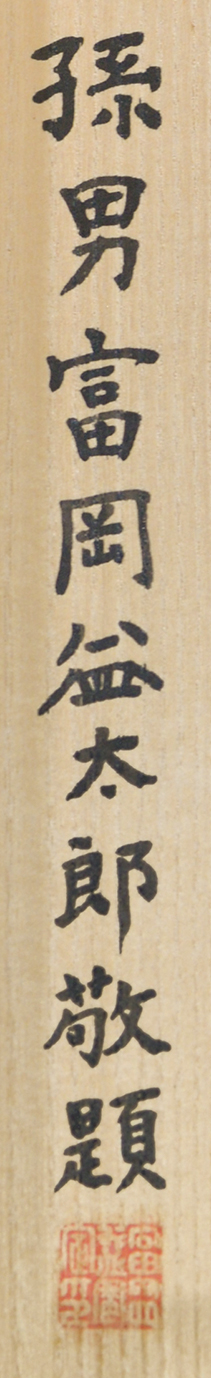 孫男富岡益太郎敬題